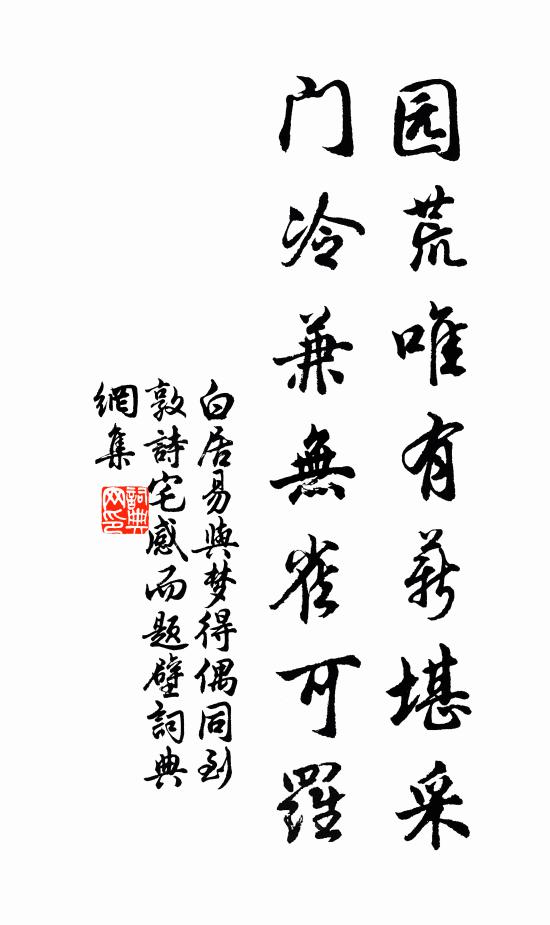 园荒唯有薪堪采
门冷兼無雀可羅
白居易與梦得偶同到
敦詩宅感而题壁詞典
網集
詞典
网印